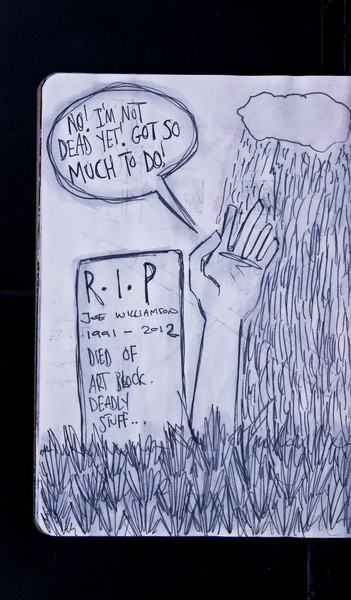 NO! I'M NOT
DEAD YET! GOT SO
MUCH TO DO!
R.I.P
JOE WILLIAMSON
1991 - 2012
DIED OF
ART BLOCK.
DEADLY
STUFF...